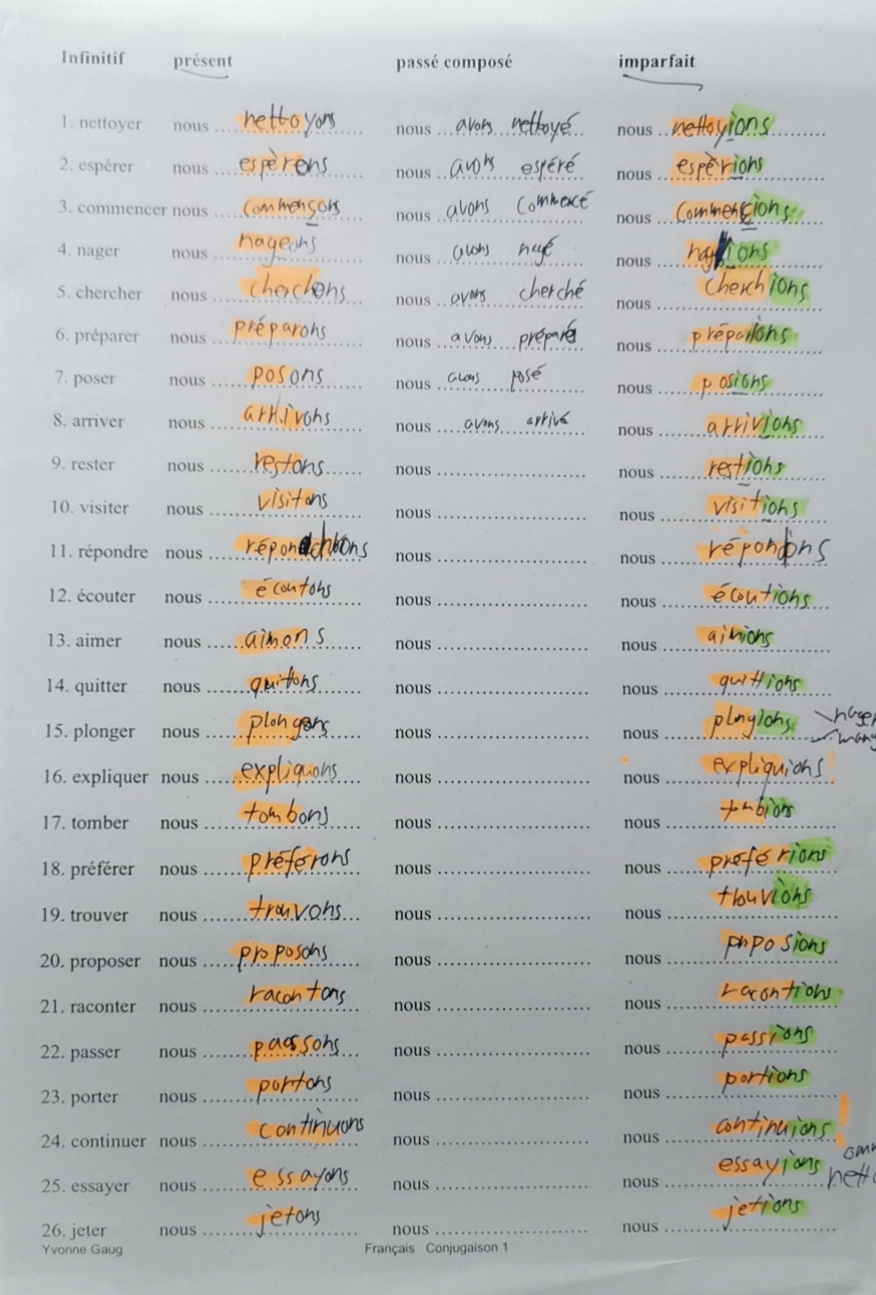 Infinitif présent passé composé imparfait
1. nettoyer nous nettoyons nous avons nettoyé nous nettoyions
2. espérer nous espèrons nous avons espéré nous espèrions
3. commencer nous commençons nous avons commencé nous commencions
4. nager nous nageons nous avons nagé nous nagions
5. chercher nous cherchons nous avons cherché nous cherchions
6. préparer nous préparons nous avons préparé nous préparions
7. poser nous posons nous avons posé nous posions
8. arriver nous arrivons nous avons arrivé nous arrivions
9. rester nous restons nous nous restions
10. visiter nous visitons nous nous visitions
11. répondre nous nous nous
12. écouter nous écoutons nous nous écoutions
13. aimer nous aimons nous nous aimions
14. quitter nous quittons nous nous quittions
15. plonger nous nous nous plongions
16. expliquer nous expliquons nous nous expliquions
17. tomber nous tombons nous nous tombions
18. préférer nous préférons nous nous préférions
19. trouver nous trouvons nous nous trouvions
20. proposer nous proposons nous nous proposions
21. raconter nous racontons nous nous racontions
22. passer nous passons nous nous passions
23. porter nous portons nous nous portions
24. continuer nous continuons nous nous continuions
25. essayer nous essayons nous nous essayions
26. jeter nous jetons nous nous jetions
Yvonne Gaug Français Conjugaison 1